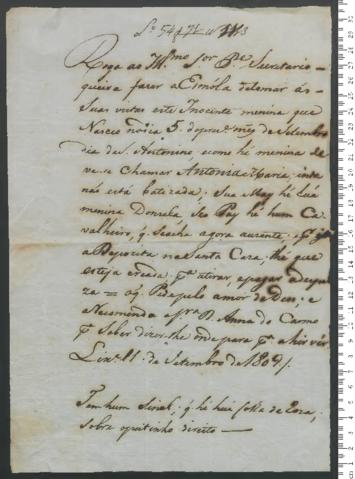 Roga ao Ill.mo Sor. Pe. Secretario
queira fazer a Esmóla de tomar ás
Suas vistas este Inocente menina que
Nasceo no dia 5 do prez.e mez de Setembro
dia de S. Antonino, e como hé menina de
ve-se Chamar Antonia Maria, inda
naõ está batizada; Sua May hé húa
menina Donzela, Seo Pay hé hum Ca
valheiro, q. Seacha agora auzente,
a Depozita na Santa Caza, thé que
esteja creada, p.a a tirar, e pagar a despe
za = Pede pelo amor de Deus; e
a Recomenda a Sr.a D. Anna do Carmo
p.a Saber dizer-lhe onde para p.a a hir ver
Lix.a 11 de Setembro de 1809
Tem hum Sinal, q. hé húa folia de Roza,
Sobre o peitinho direito